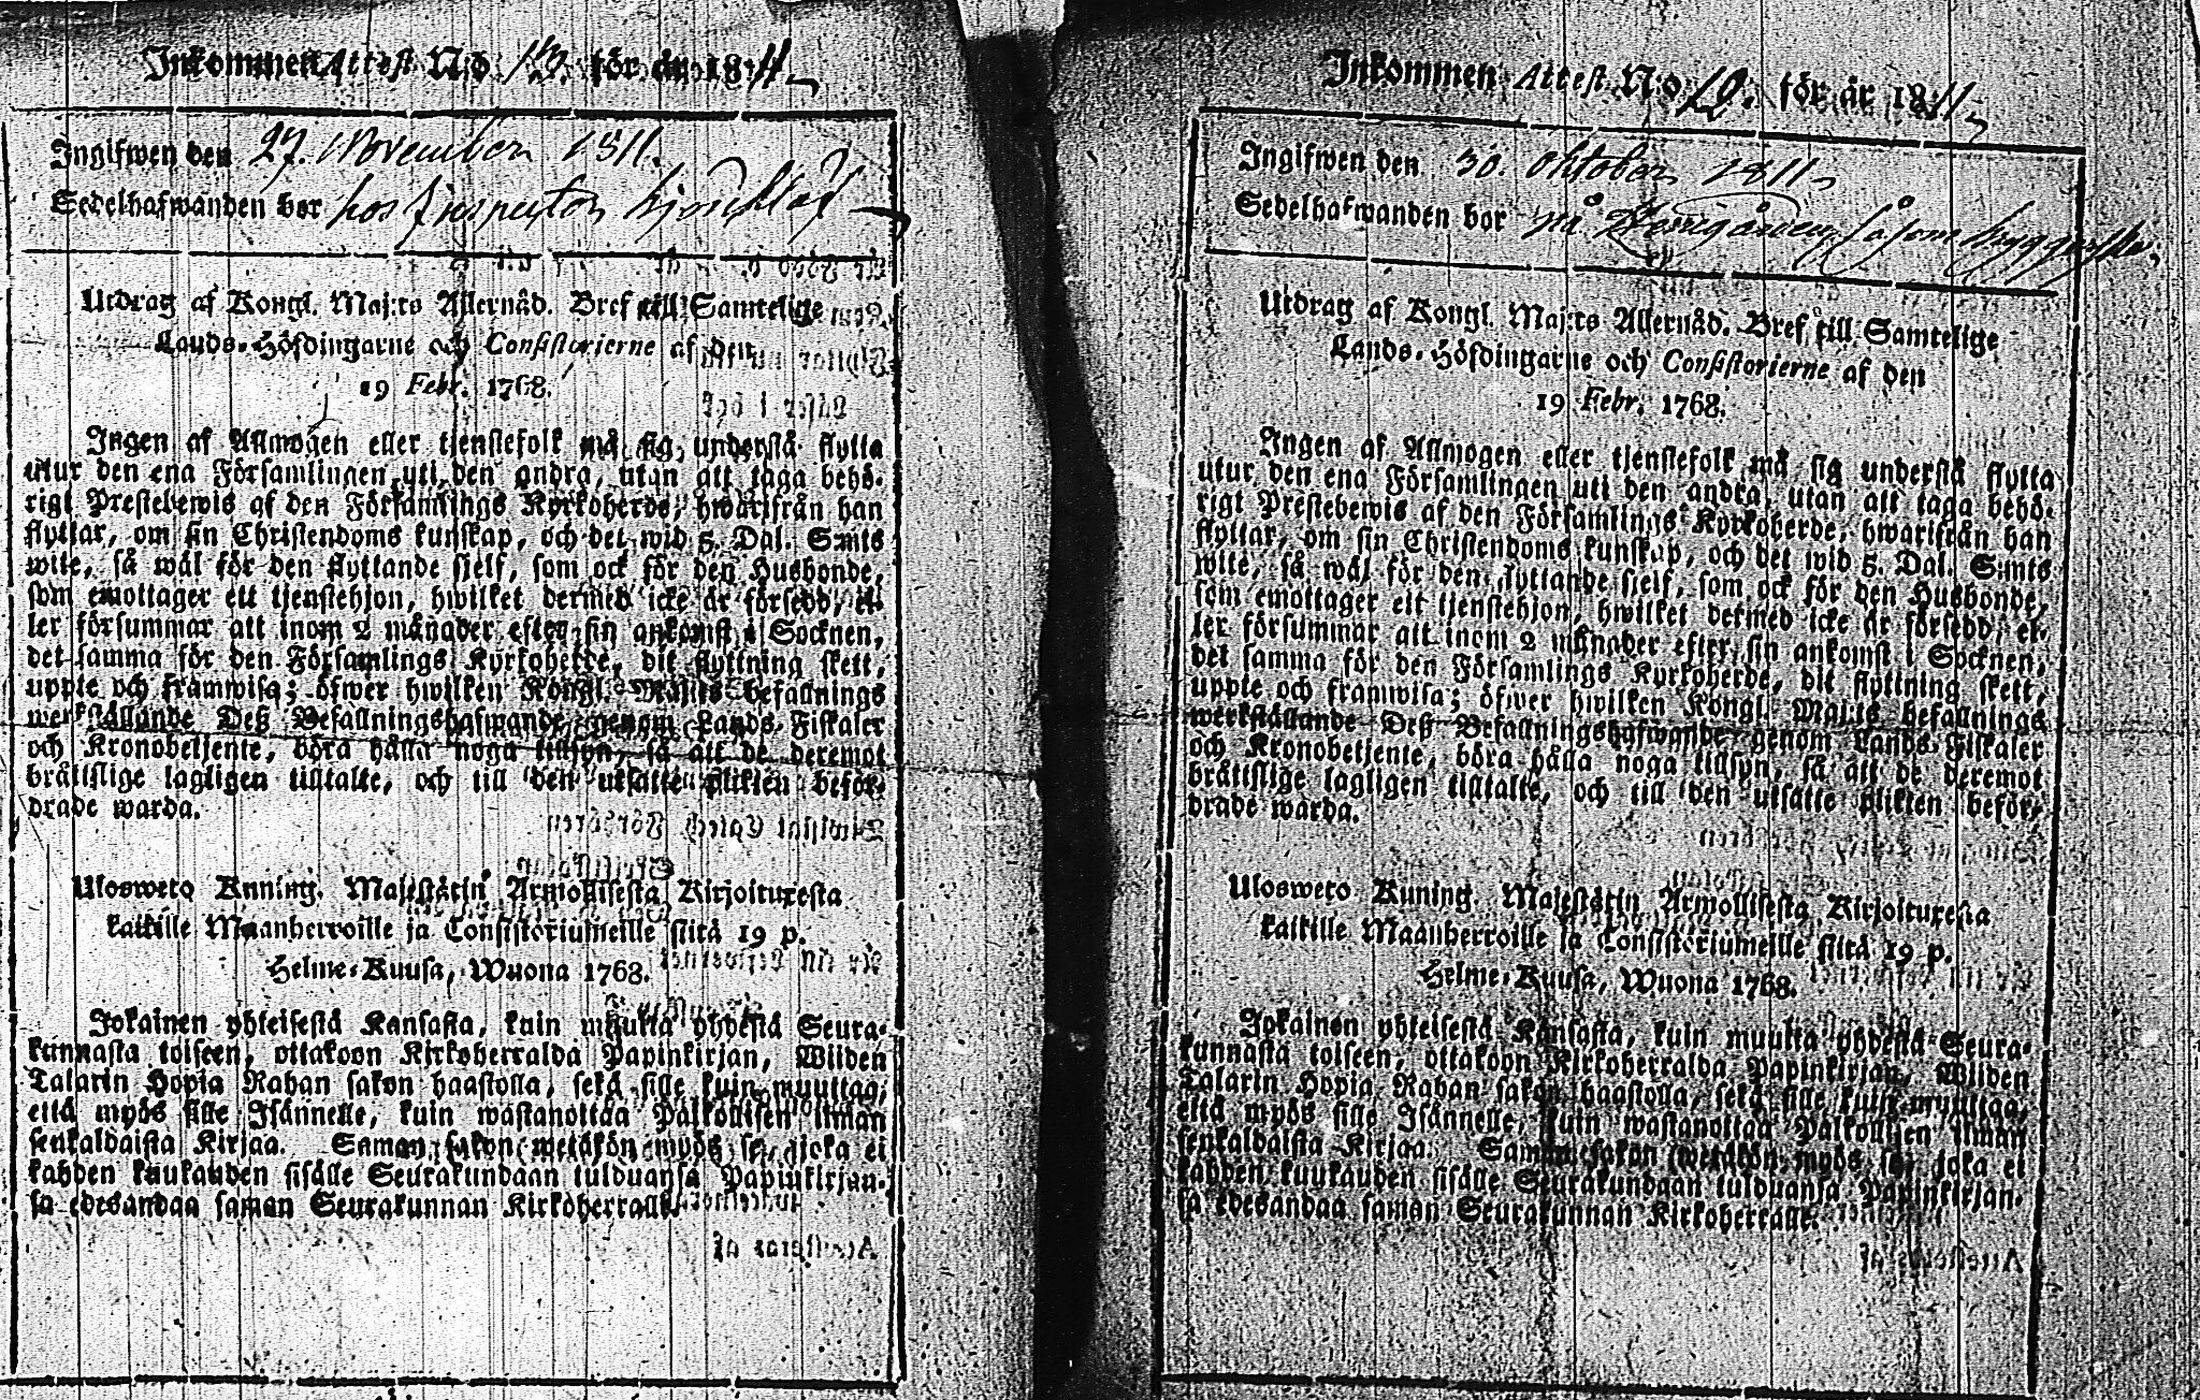 Inkommen Attest N:o för år 1811
Ingifwen den 27. November 1811.
Sedelhafwanden bor hos Inspector
Utdrag af Kongl. Maj:ts Allernåd. Bref till Samtelige
Lands-Höfdingarne och Consistorierne af den
19 Febr. 1768.
Ingen af Allmogen eller tjenstefolk må sig understå flytta
utur den ena Församlingen uti den andra, utan att taga behö-
rigt Prestebewis af den Församlings Kyrkoherde, hwarifrån han
flyttar, om sin Christendoms kunskap, och det wid 5. Dal. S:mts
wite, så wäl för den flyttande sjelf, som ock för den Husbonde,
som emottager ett tjenstehjon, hwilket dermed icke är försedd, el-
ler försummar att inom 2 månader efter sin ankomst i Socknen,
det samma för den Församlings Kyrkoherde, dit flyttning skett,
uppte och framwisa; öfwer hwilken Kongl. Maj:ts befallnings
werkställande Deß Befallningshafwande genom Lands-Fiskaler
och Kronobetjente, böra hålla noga tillsyn, så att de deremot
bråttslige lagligen tilltalte, och till den utsatte plikten beför-
drade warda.
Ulosweto Kuning. Majestätin Armollisesta Kirjoituxesta
kaikille Maanherroille ja Consistoriumeille siitä 19 p.
Helme-Kuusa, Wuona 1768.
Jokainen yhteisestä Kansasta, kuin muutta yhdestä Seura-
kunnasta toiseen, ottakoon Kirkoherralda Papinkirjan, Wiiden
Talarin Hopia Rahan sakon haastolla, sekä sille kuin muuttaa,
että myös sille Isännelle, kuin wastanottaa Palkollisen ilman
senkaldaista Kirjaa. Saman sakon wetäkön myös se, joka ei
kahden kuukauden sisälle Seurakundaan tulduansa Papinkirjan-
sa edesandaa saman Seurakunnan Kirkoherralle.
Inkommen Attest N:o 19. för år 1811
Ingifwen den 30. Oktober 1811
Sedelhafwanden bor på såsom bryggerska
Utdrag af Kongl. Maj:ts Allernåd. Bref till Samtelige
Lands-Höfdingarne och Consistorierne af den
19 Febr. 1768.
Ingen af Allmogen eller tjenstefolk må sig understå flytta
utur den ena Församlingen uti den andra, utan att taga behö-
rigt Prestebewis af den Församlings Kyrkoherde, hwarifrån han
flyttar, om sin Christendoms kunskap, och det wid 5. Dal. S:mts
wite, så wäl för den flyttande sjelf, som ock för den Husbonde,
som emottager ett tjenstehjon, hwilket dermed icke är försedd, el-
ler försummar att inom 2 månader efter sin ankomst i Socknen,
det samma för den Församlings Kyrkoherde, dit flyttning skett,
uppte och framwisa; öfwer hwilken Kongl. Maj:ts befallnings
werkställande Deß Befallningshafwande genom Lands-Fiskaler
och Kronobetjente, böra hålla noga tillsyn, så att de deremot
bråttslige lagligen tilltalte, och till den utsatte plikten beför-
drade warda.
Ulosweto Kuning. Majestätin Armollisesta Kirjoituxesta
kaikille Maanherroille ja Consistoriumeille siitä 19 p.
Helme-Kuusa, Wuona 1768.
Jokainen yhteisestä Kansasta, kuin muutta yhdestä Seura-
kunnasta toiseen, ottakoon Kirkoherralda Papinkirjan, Wiiden
Talarin Hopia Rahan sakon haastolla, sekä sille kuin muuttaa,
että myös sille Isännelle, kuin wastanottaa Palkollisen ilman
senkaldaista Kirjaa. Saman sakon wetäkön myös se, joka ei
kahden kuukauden sisälle Seurakundaan tulduansa Papinkirjan-
sa edesandaa saman Seurakunnan Kirkoherralle.